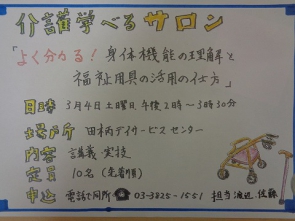 介護学べるサロン
「よく分かる！身体機能の理解と
福祉用具の活用の仕方」
日時 3月4日土曜日 午後2時〜3時30分
場所 田柄デイサービスセンター
内容 講義・実技
定員 10名(先着順)
申込 電話で同所☎03-3825-1551 担当 渡辺 佐藤